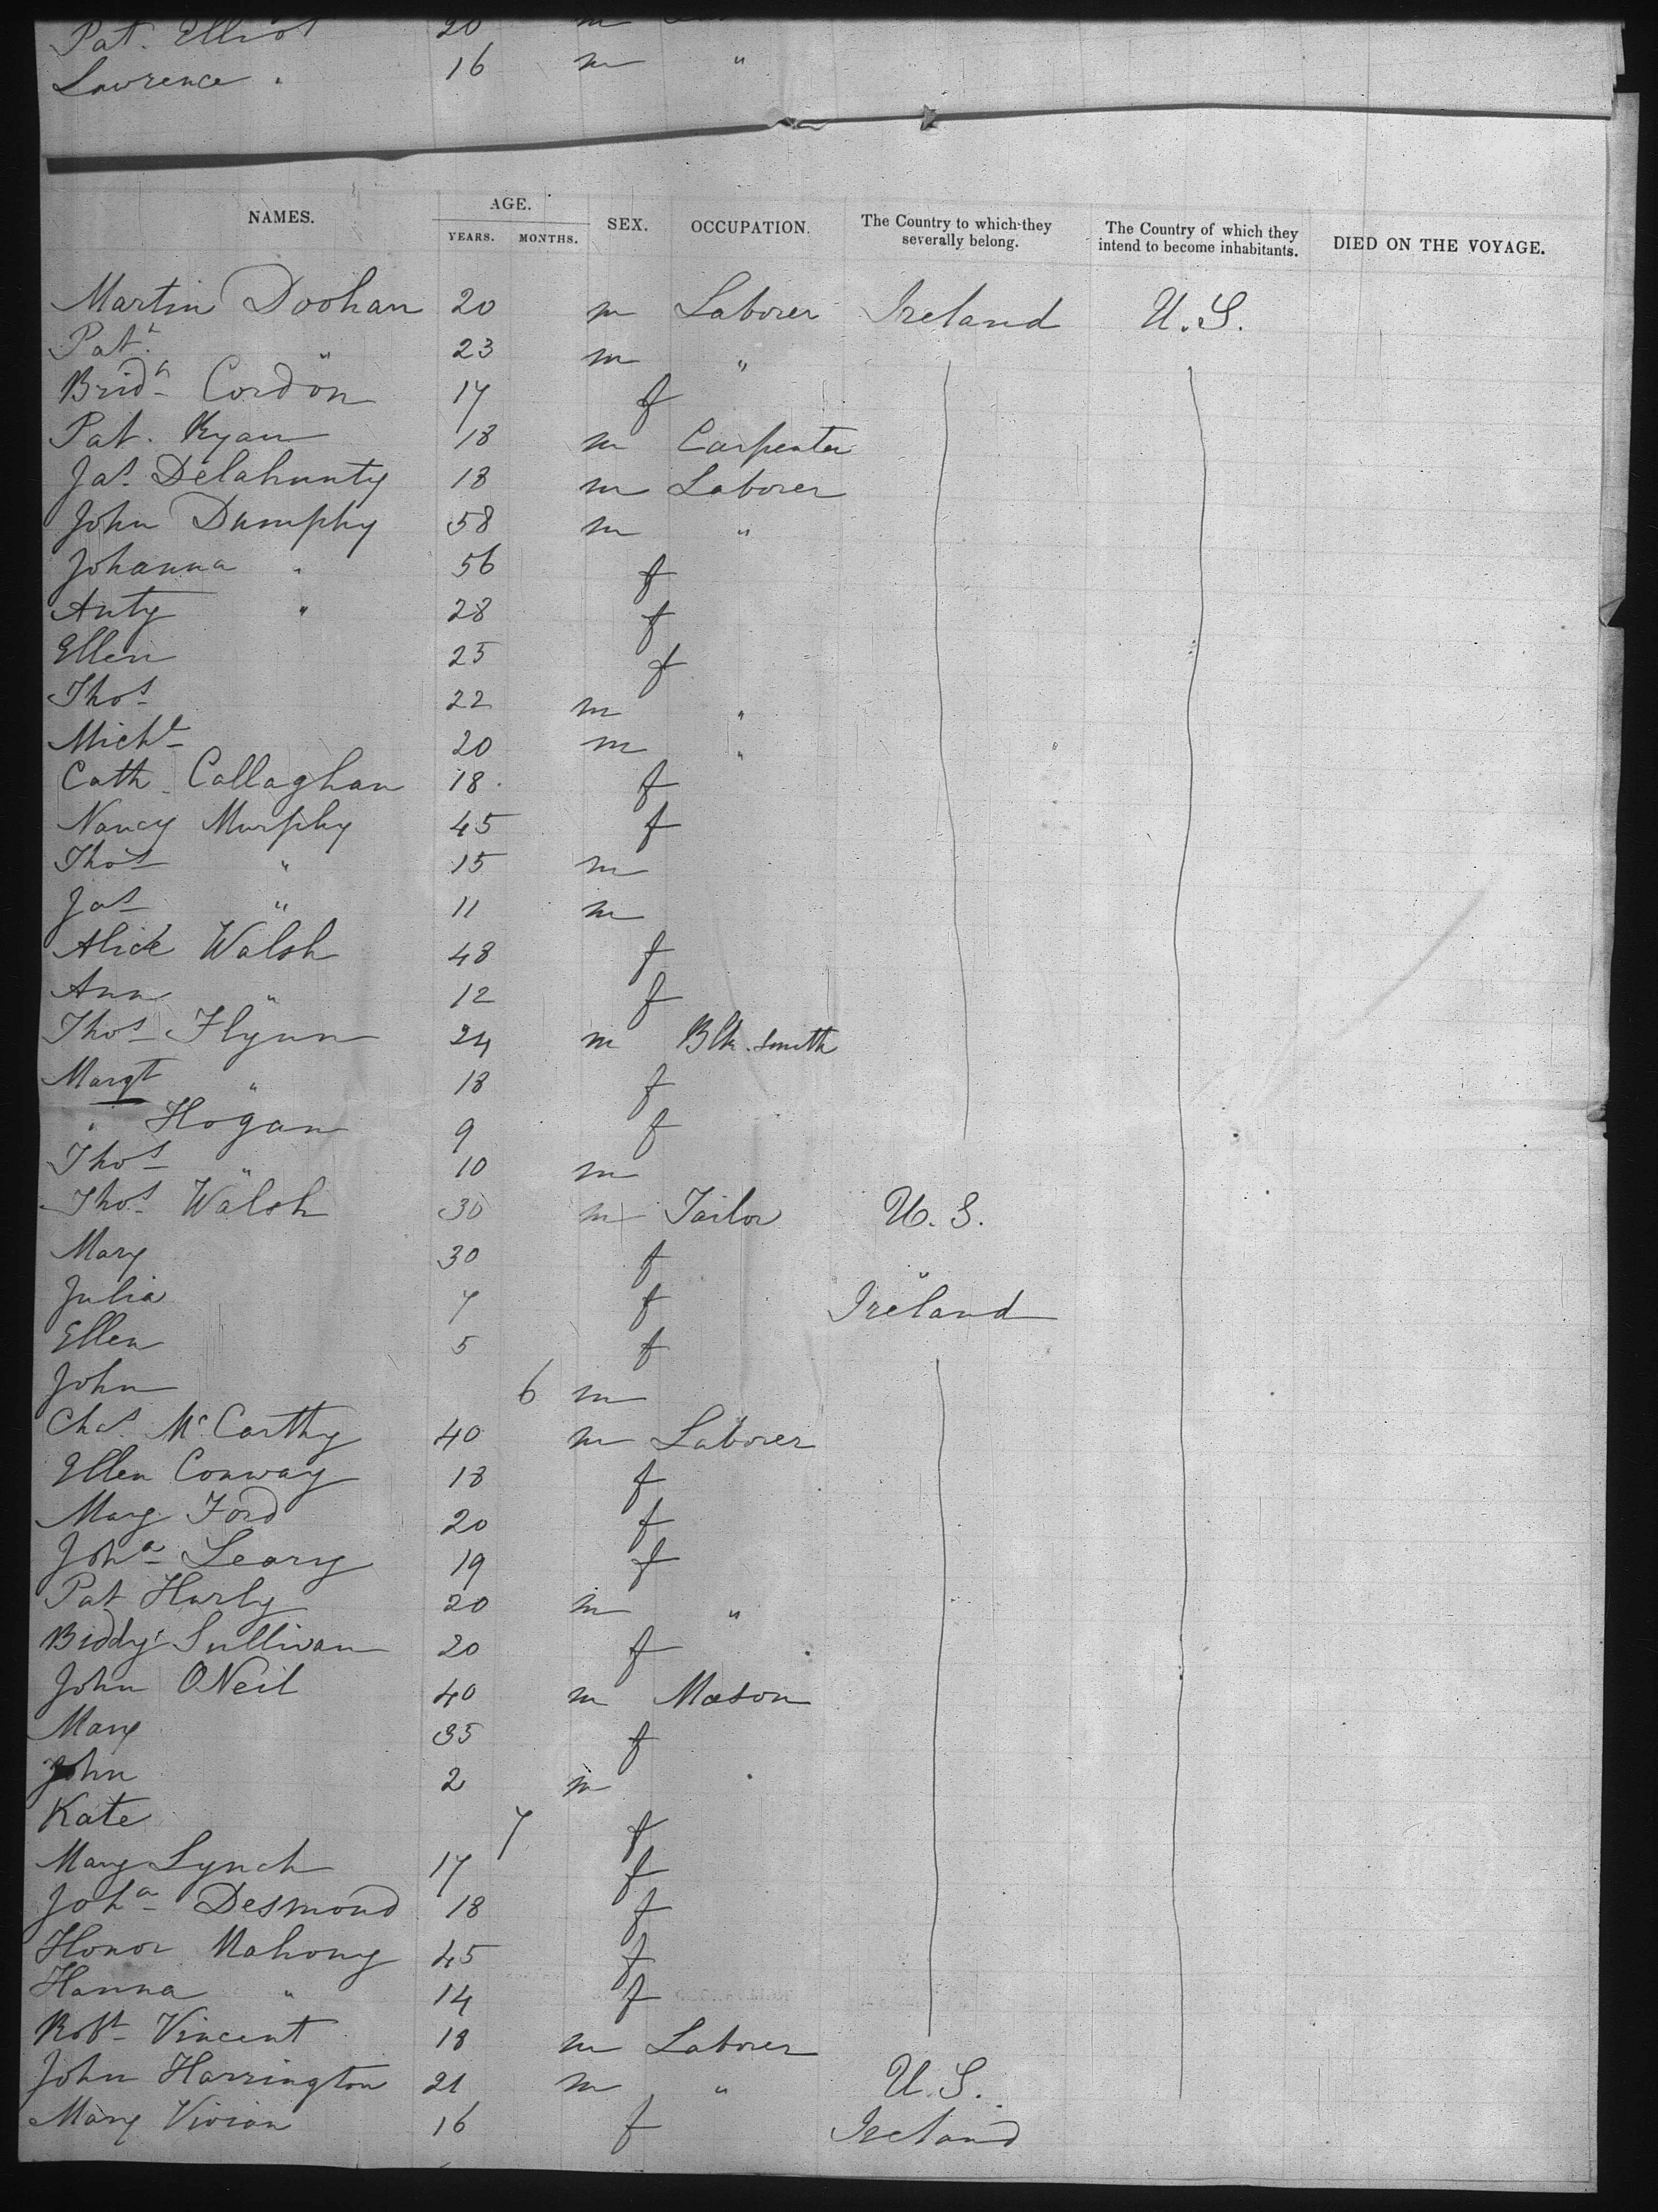 Pat. Elliot 20 m
Lawrence " 16 m "
NAMES. AGE. YEARS. MONTHS. SEX. OCCUPATION. The Country to which they severally belong. The Country of which they intend to become inhabitants. DIED ON THE VOYAGE.
Martin Doohan 20 m Laborer Ireland U.S.
Pat. " 23 m "
Brid. Cordon 17 f
Pat. Ryan 18 m Carpenter
Jas. Delahunty 18 m Laborer
John Dumphy 58 m "
Johanna " 56 f
Anty " 28 f
Ellen 25 f
Thos 22 m "
Michl 20 m "
Cath. Callaghan 18 f
Nancy Murphy 45 f
Thos " 15 m
Jas " 11 m
Alice Walsh 48 f
Ann " 12 f
Thos Flynn 24 m Blk. Smith
Margt " 18 f
" Hogan 9 f
Thos " 10 m
Thos Walsh 30 m Tailor U.S.
Mary 30 f "
Julia 7 f Ireland
Ellen 5 f
John 6 m
Chas. McCarthy 40 m Laborer
Ellen Conway 18 f
Mary Ford 20 f
Joha Leary 19 f
Pat Hurly 20 m "
Biddy Sullivan 20 f
John ONeil 40 m Mason
Mary 35 f
John 2 m
Kate 7 f
Mary Lynch 17 f
Joha Desmond 18 f
Honor Mahony 45 f
Hanna " 14 f
Robt Vincent 18 m Laborer
John Harrington 21 m " U.S.
Mary Vivian 16 f Ireland